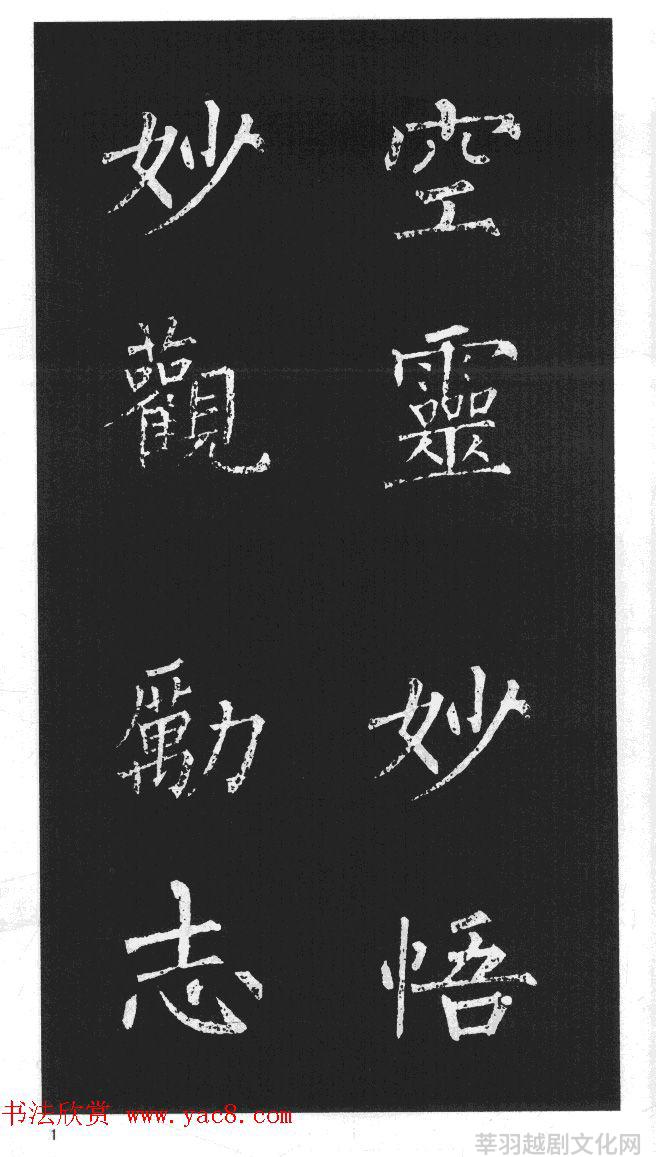 空靈妙悟
妙觀勵志
书法欣赏 www.yac8.com
1
莘羽越剧文化网